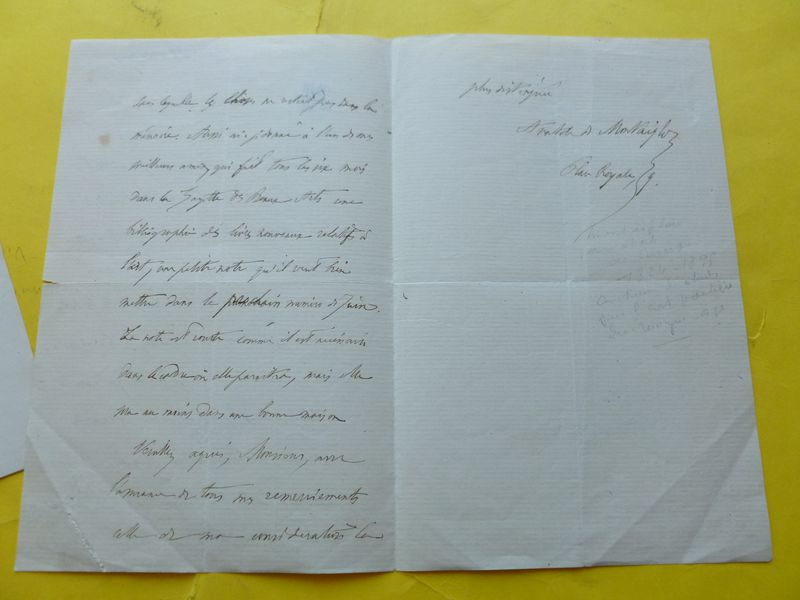 sans laquelle les choses ne restent pas dans la
mémoire. Aussi ai-je donné à l'un de mes
meilleurs amis, qui fait tous les six mois
dans la Gazette des Beaux Arts une
bibliographie des livres nouveaux relatifs à
l'art, une petite note qu'il veut bien
mettre dans le prochain numéro de Juin.
La note est courte comme il est nécessaire
dans le cadre où elle paraîtra, mais elle
sera au moins dans une bonne maison
Veuillez agréer, Monsieur, avec
l'assurance de tous mes remerciements
celle de ma considération la
plus distinguée
Anatole de Montaiglon
Place Royale, 9.
1895